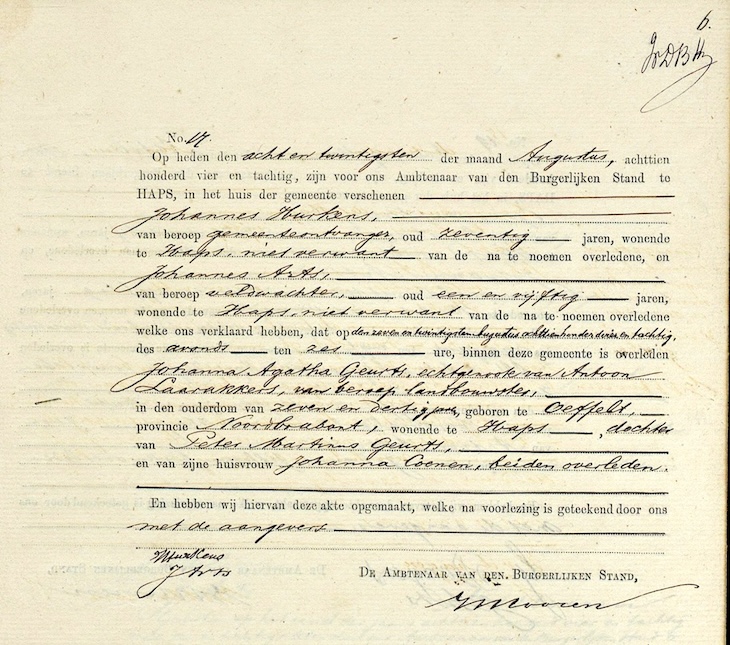 6.
No. 17
Op heden den acht en twintigsten der maand Augustus, achttien
honderd vier en tachtig, zijn voor ons Ambtenaar van den Burgerlijken Stand te
HAPS, in het huis der gemeente verschenen
Johannes Hurkens,
van beroep gemeenteontvanger, oud zeventig jaren, wonende
te Haps, niet verwant van de na te noemen overledene, en
Johannes Arts,
van beroep veldwachter, oud een en vijftig jaren,
wonende te Haps, niet verwant van de na te noemen overledene
welke ons verklaard hebben, dat op den zeven en twintigsten Augustus achttienhonderd vier en tachtig,
des avonds ten zes ure, binnen deze gemeente is overleden
Johanna Agatha Geurts, echtgenoote van Antoon
Laarakkers, van beroep landbouwster,
in den ouderdom van zeven en dertig jaren, geboren te Oeffelt,
provincie Noordbrabant, wonende te Haps, dochter
van Peter Martinus Geurts,
en van zijne huisvrouw Johanna Coenen, beiden overleden.
En hebben wij hiervan deze akte opgemaakt, welke na voorlezing is geteekend door ons
met de aangevers
Hurkens
J Arts
DE AMBTENAAR VAN DEN BURGERLIJKEN STAND,